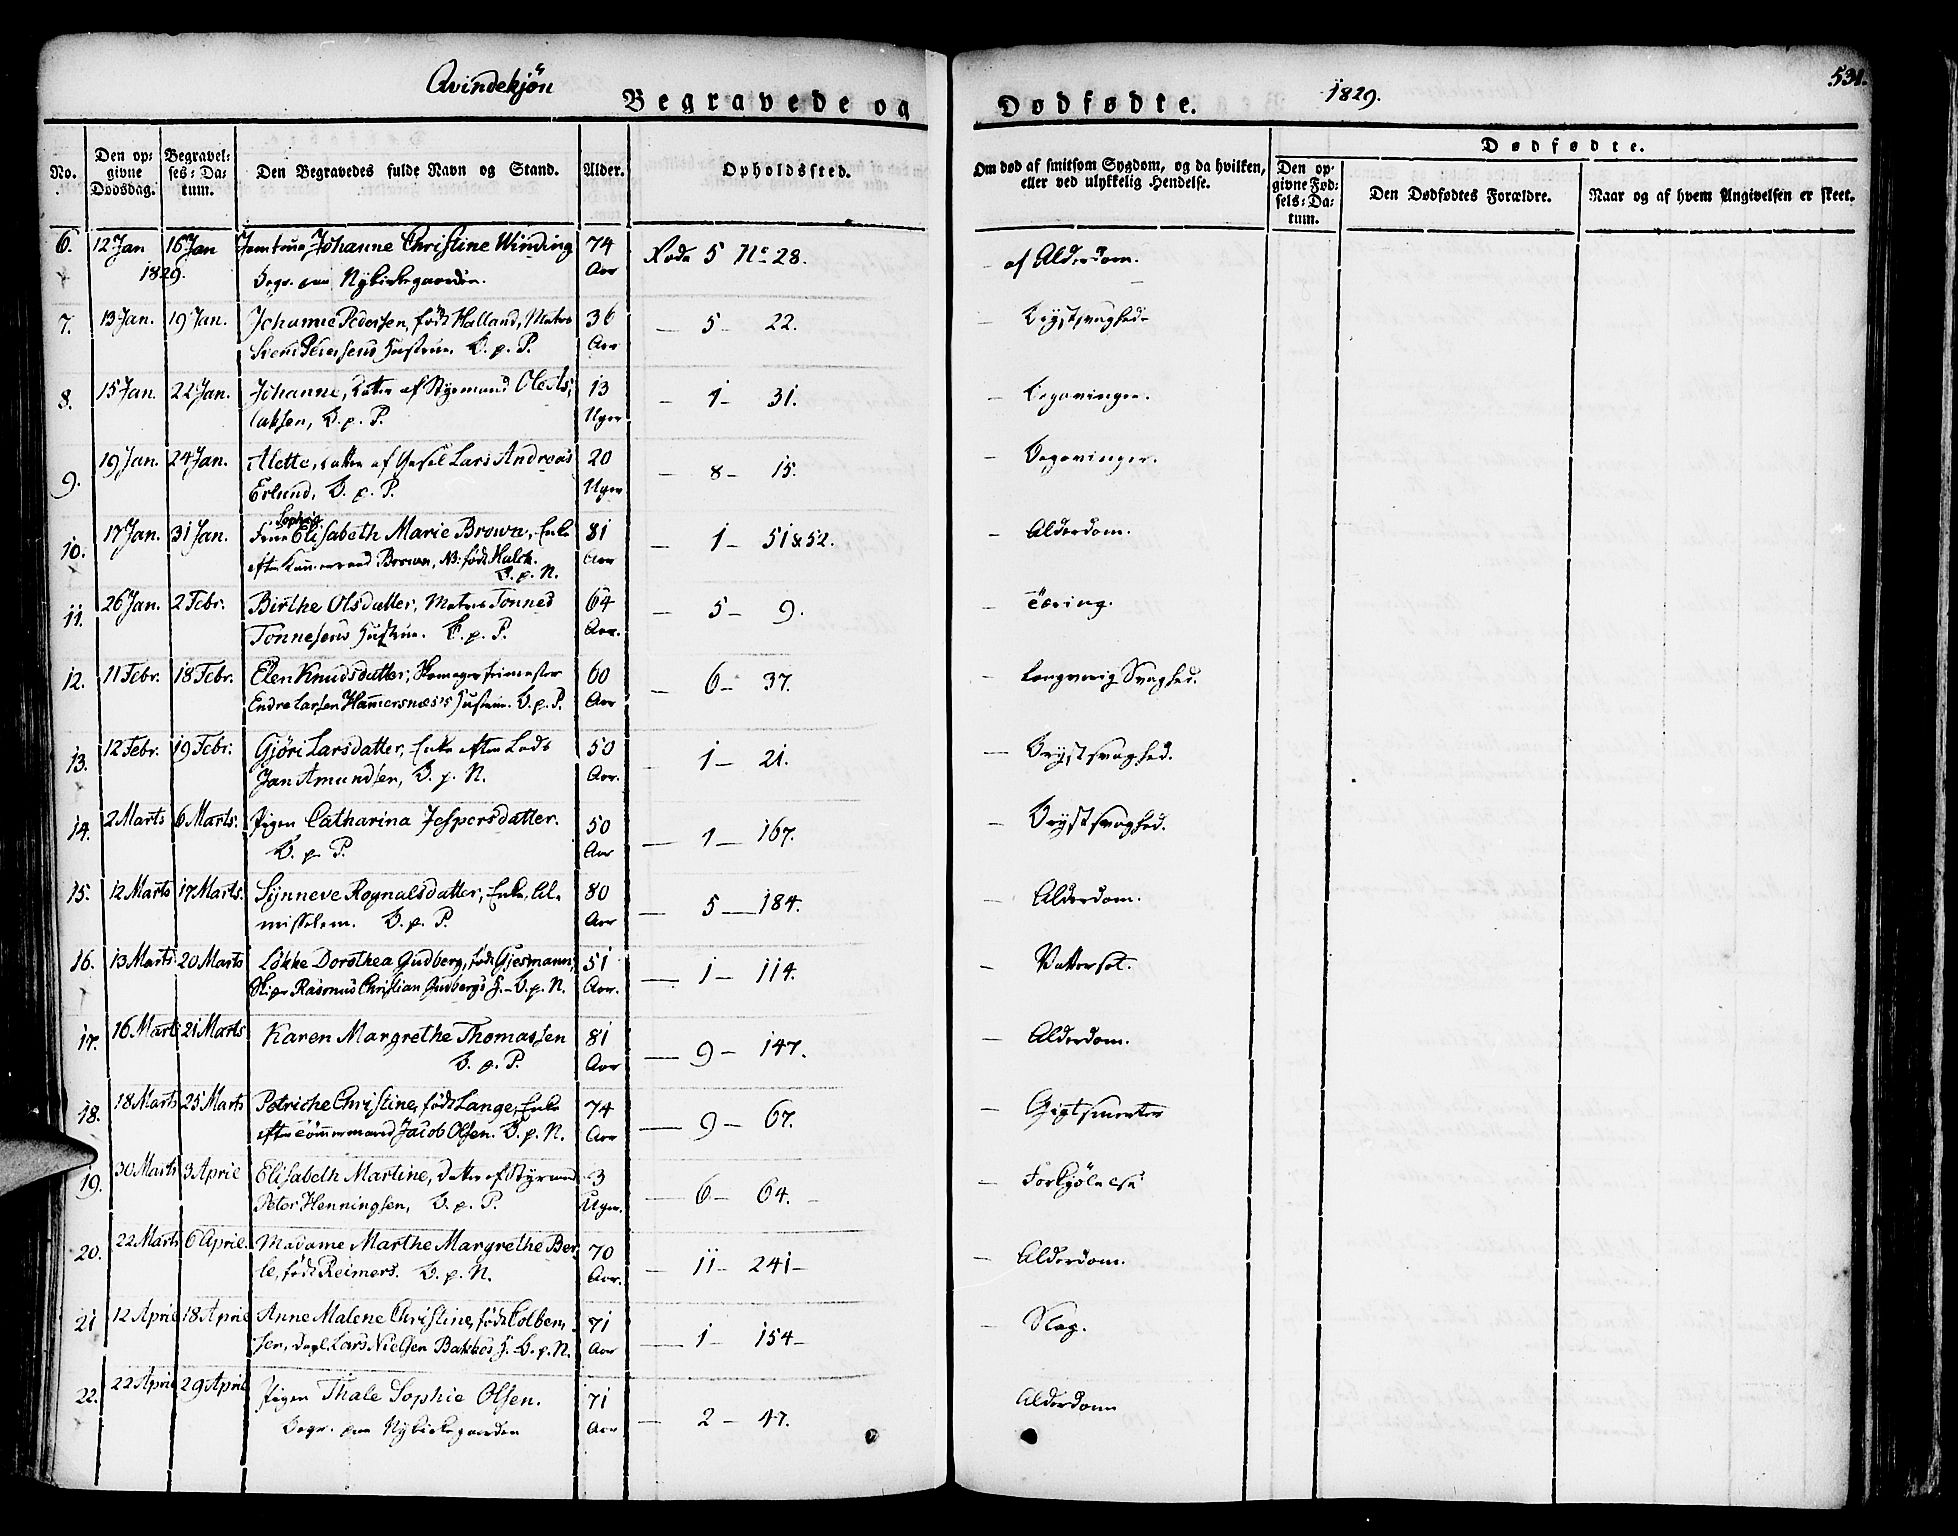 Qvindekjön
Begravede og
Dødfødte.
1829.
531.
No.
Den op-
givne
Dødsdag.
Begravel-
ses-Da-
tum.
Den Begravedes fulde Navn og Stand.
Alder.
Opholdssted.
Om død af smitsom Sygdom, og da hvilken,
eller ved ulykkelig Hendelse.
Dødfødte.
Den op-
givne Fød-
sels-Da-
tum.
Den Dødfødtes Forældre.
Naar og af hvem Angivelsen er skeet.
6. 12 Jan 16 Jan Jomfrue Johanne Christine Winding 74 Rode 5 No 28. – af Alderdom.
1829. Begr. paa Nykirkegaarden. Aar
7. 13 Jan. 19 Jan. Johanne Pedersen, født Halland, Matros 36 — 5 – 22. – Brystsvaghed
Siem Petersens Hustrue. B. p. P. Aar
8. 15 Jan. 22 Jan. Johanne, Datter af Styrmand Ole As, 13 — 1 – 31. – Begavinger.
laksen, B. p. P. Uger
9. 19 Jan. 24 Jan. Alette, Datter af Lars Andreas 20 — 8 – 15. – Begavinger.
Erlund, B. p. P. Uger
10. 17 Jan. 31 Jan. Frue Sophia Elisabeth Marie Brown, Enke 81 — 1 – 51 & 52. – Alderdom.
efter Kammerraad Brown, født Halck. Aar
B. p. N.
11. 26 Jan. 2 Febr. Birthe Olsdatter, Matros Tönnes 64 — 5 – 9. – Tæring.
Tönnesens Hustrue. B. p. P. Aar.
12. 11 Febr. 18 Febr. Elen Knudsdatter, 60 — 6 – 37. – Langvarig Svaghed.
Endre Larsen Hammersnæs's Hustrue. B. p. P. Aar
13. 12 Febr. 19 Febr. Gjöri Larsdatter, Enke efter Lods 50 – 1 – 21. — Brystsvaghed.
Jan Amundsen, B. p. N. Aar.
14. 2 Marts 6 Marts. Pigen Catharina Jespersdatter. 50 — 1 – 167. – Brystsvaghed.
B. p. P. Aar
15. 12 Marts 17 Marts. Synneve Rognalsdatter, Enke, Al- 80 — 5 — 184. – Alderdom.
misselem. B. p. P. Aar
16. 13 Marts 20 Marts Lökke Dorothea Gudberg, født Gjesmann, 51 — 1 – 114. – Vattersot.
Rasmus Christian Gudbergs H. – B. p. N. Aar.
17. 16 Marts 21 Marts Karen Margrethe Thomassen 81 — 9 – 147. – Alderdom.
B. p. P. Aar
18. 18 Marts 25 Marts Petriche Christine, født Lange, Enke 74 — 9 – 67. – Gigtsmerter
efter Tömmermand Jacob Olsen. B. p. N. Aar
19. 30 Marts 3 April Elisabeth Martine, Datter af Styrmand 3 — 6 – 64. – – Forkjölelse
Peter Henningsen, B. p. P. Uger.
20. 22 Marts 6 April. Madame Marthe Margrethe Ber, 70 – 11 – 241 – – Alderdom.
le, født Reimers. B. p. N. Aar.
21 12 April 18 April Anne Malene Christine, født Colben, 71 — 1 – 154 – – Slag.
sen, Dagl. Lars Nielsen Bakkes H. – B. p. N. Aar
22. 22 April 29 April Pigen Thale Sophie Olsen. 71 — 2 – 47. Alderdom
Begr. paa Nykirkegaarden Aar